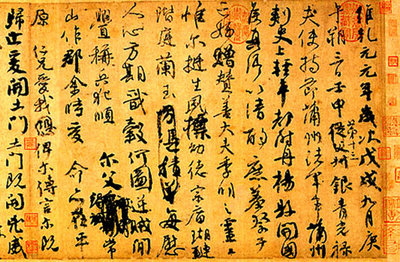 維乾元元年歲次戊戌九月庚
午朔三日壬申第十三叔銀青光祿
夫使持節蒲州諸軍事蒲州
刺史上輕車都尉丹楊縣開國
侯真卿以清酌庶羞祭于
亡姪贈贊善大夫季明之靈曰
惟爾挺生夙標幼德宗廟瑚璉
階庭蘭玉每慰
人心方期戩穀何圖逆賊閒
釁稱兵犯順爾父常
山作郡余時受命亦在平
原仁兄愛我俾爾傳言爾既
歸止爰開土門土門既開凶威